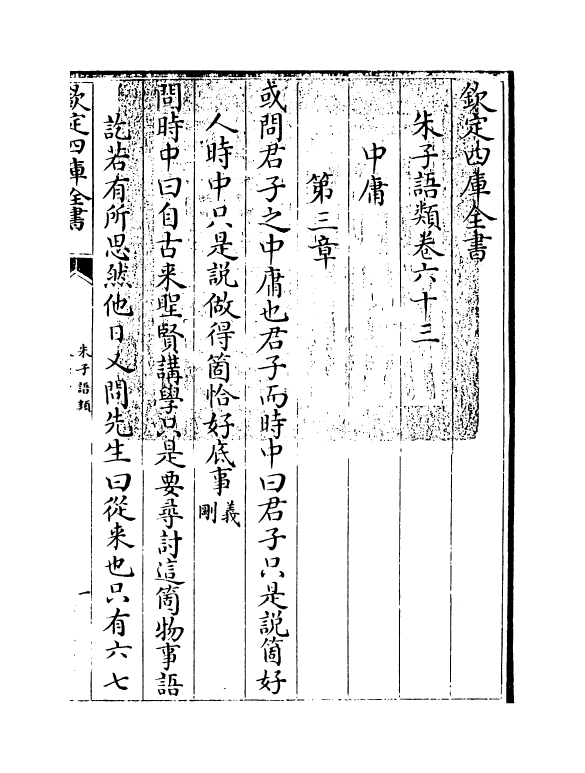 欽定四庫全書
朱子語類卷六十三
中庸
第三章
或問君子之中庸也君子而時中曰君子只是說箇好
人時中只是說做得箇恰好底事義剛
問時中曰自古来聖賢講學只是要尋討這箇物事語
訖若有所思然他日又問先生曰從来也只有六七
欽定四庫全書
朱子語類
一